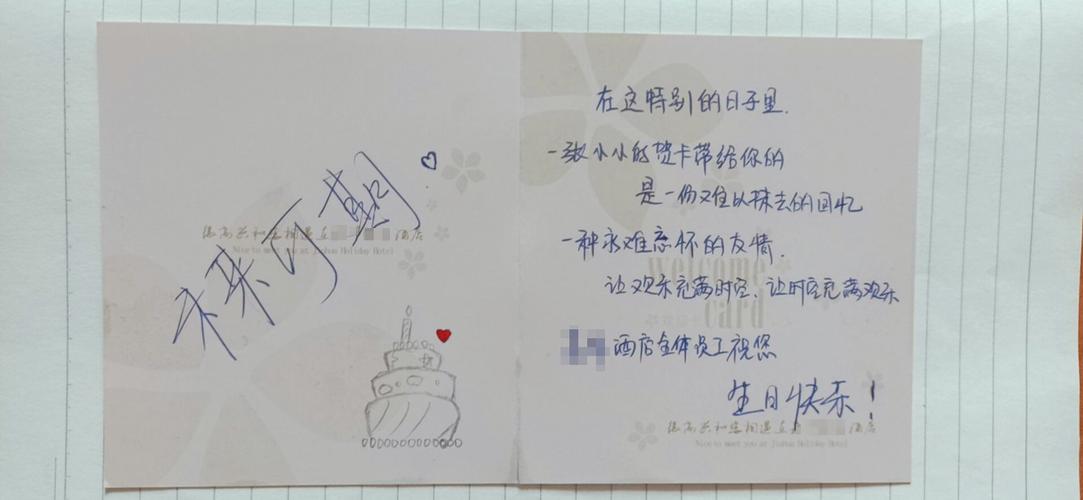 未来可期
很高兴和您相遇在
酒店
Nice to meet you at Jinhua Holiday Hotel
在这特别的日子里.
一张小小的贺卡带给你的
是一份难以抹去的回忆
一种永难忘怀的友情.
welcome
card
让欢乐充满时空,让时空充满欢乐
酒店全体员工祝您
生日快乐!
很高兴和您相遇在
酒店
Nice to meet you at Jinhua Holiday Hotel